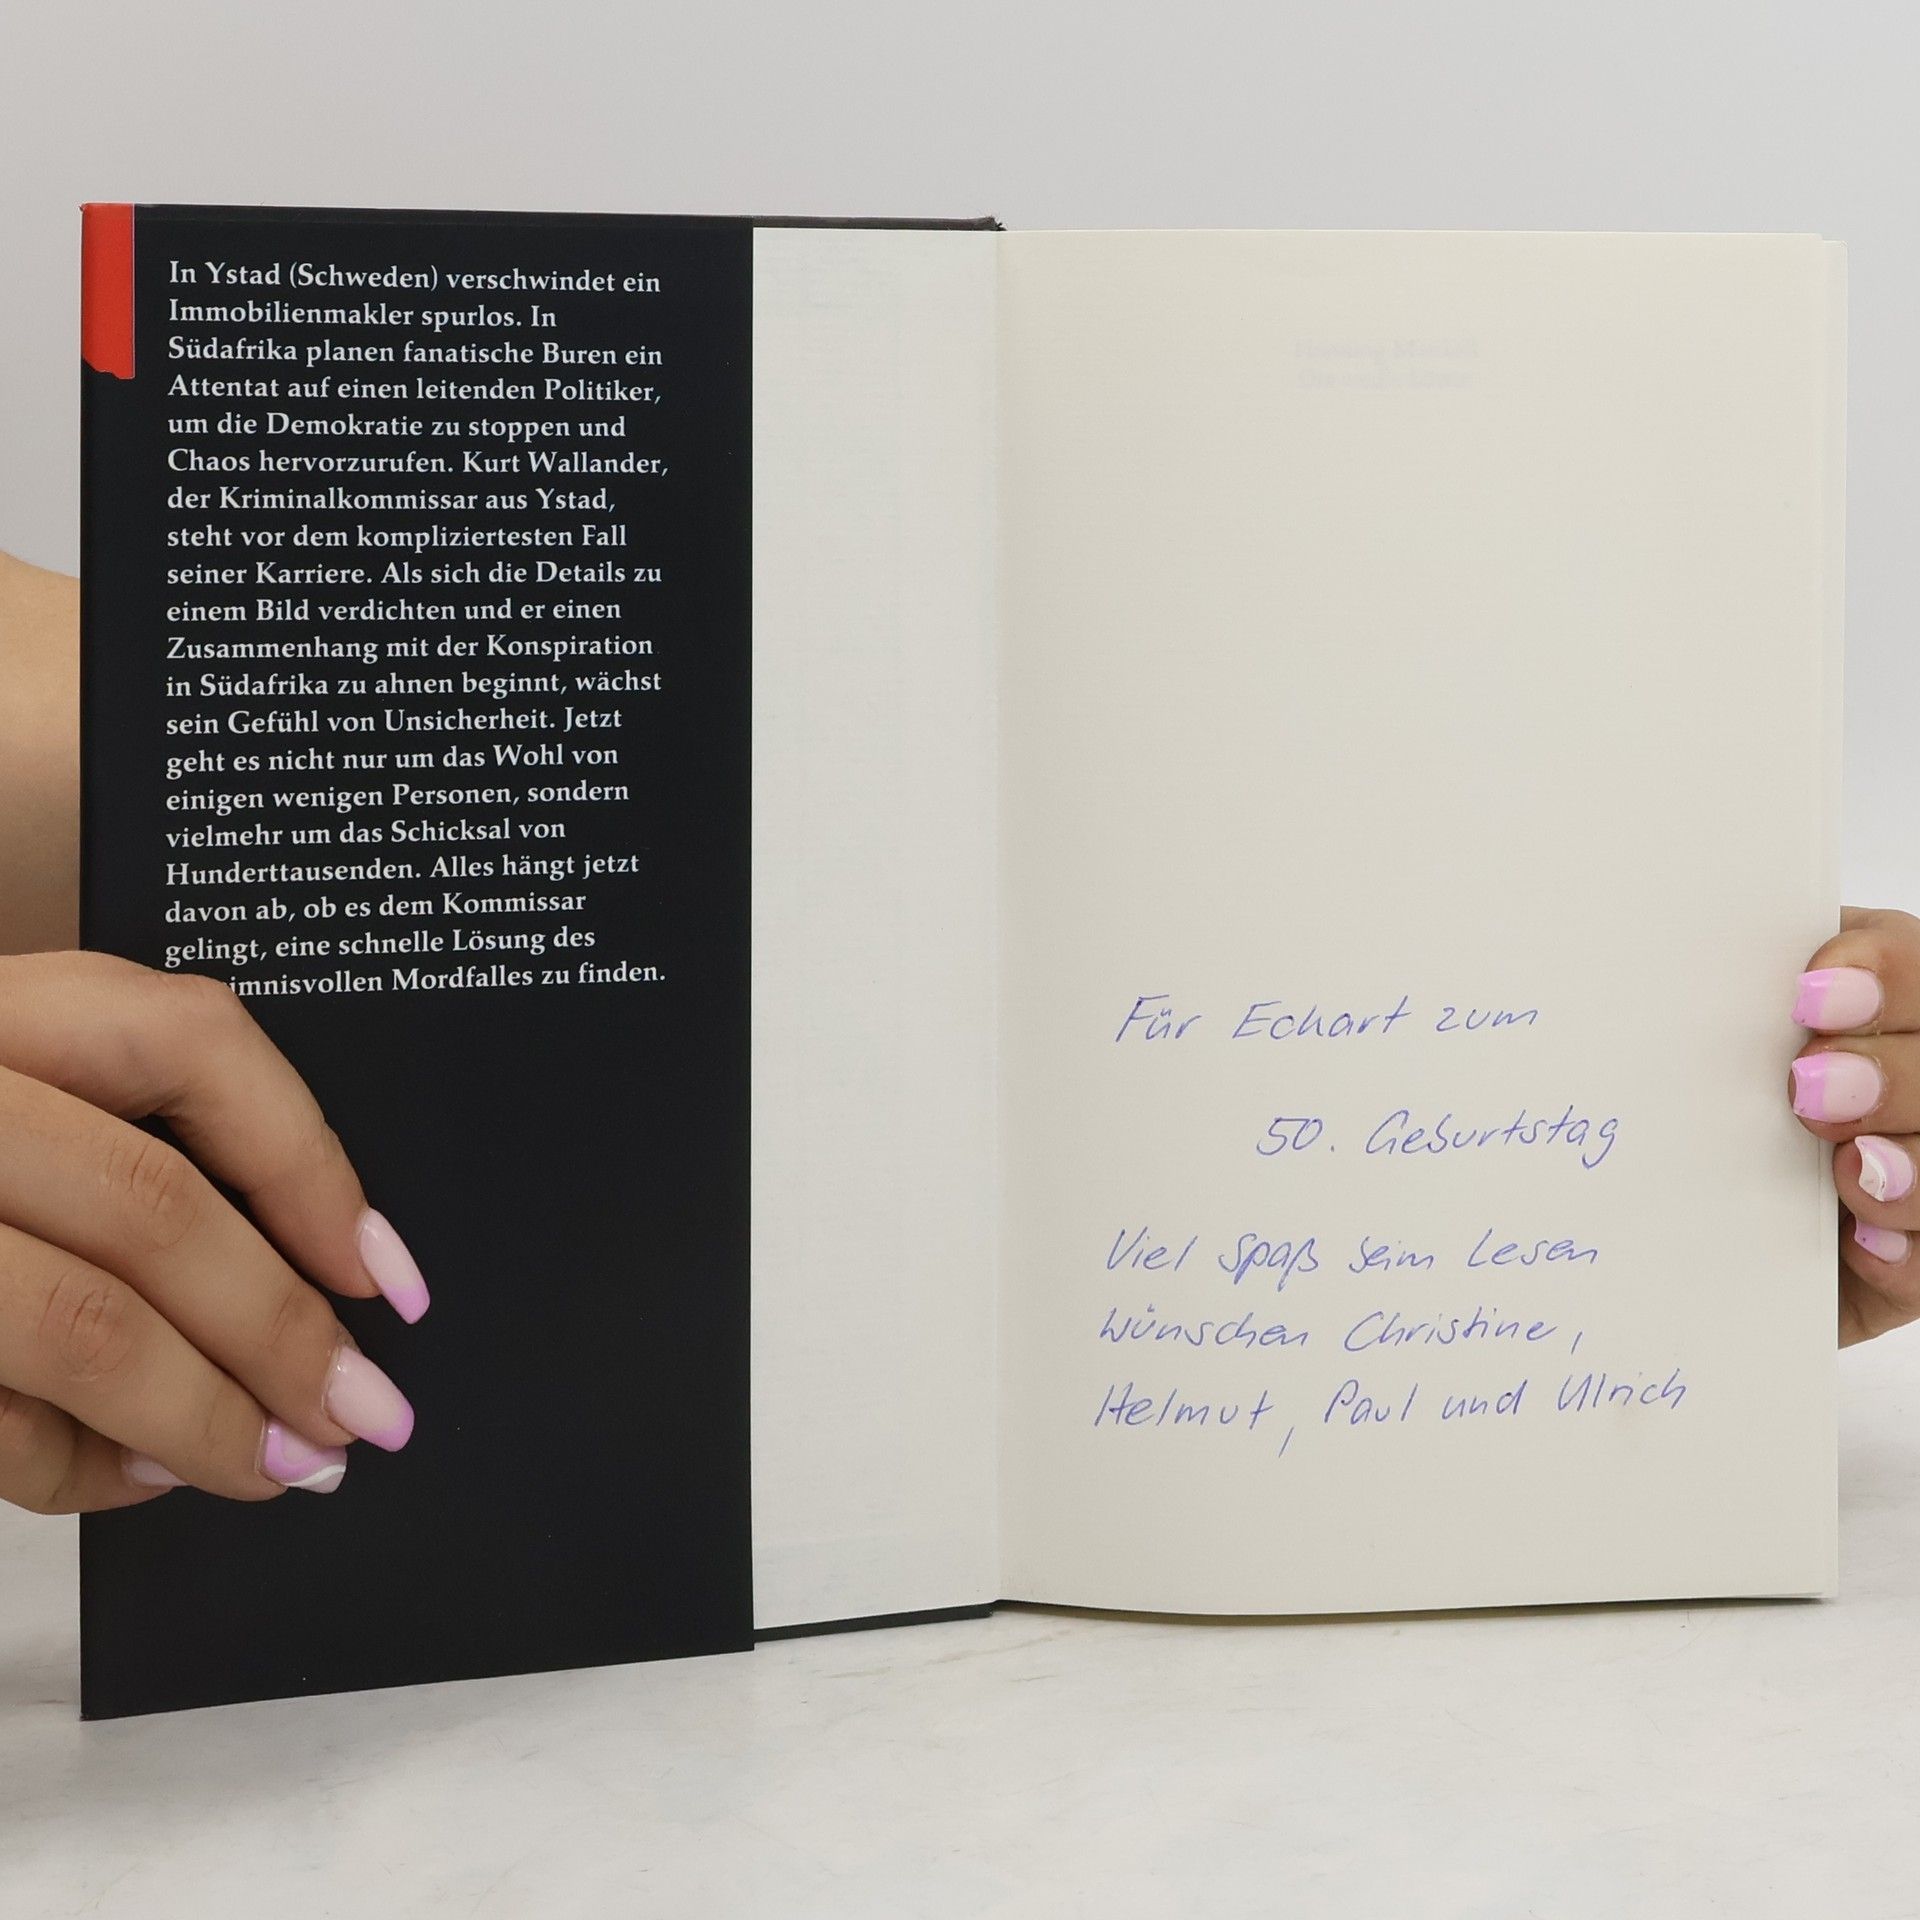 In Ystad (Schweden) verschwindet ein
Immobilienmakler spurlos. In
Südafrika planen fanatische Buren ein
Attentat auf einen leitenden Politiker,
um die Demokratie zu stoppen und
Chaos hervorzurufen. Kurt Wallander,
der Kriminalkommissar aus Ystad,
steht vor dem kompliziertesten Fall
seiner Karriere. Als sich die Details zu
einem Bild verdichten und er einen
Zusammenhang mit der Konspiration
in Südafrika zu ahnen beginnt, wächst
sein Gefühl von Unsicherheit. Jetzt
geht es nicht nur um das Wohl von
einigen wenigen Personen, sondern
vielmehr um das Schicksal von
Hunderttausenden. Alles hängt jetzt
davon ab, ob es dem Kommissar
gelingt, eine schnelle Lösung des
imnisvollen Mordfalles zu finden.
Für Eckart zum
50. Geburtstag
Viel Spaß beim Lesen
wünschen Christine,
Helmut, Paul und Ulrich